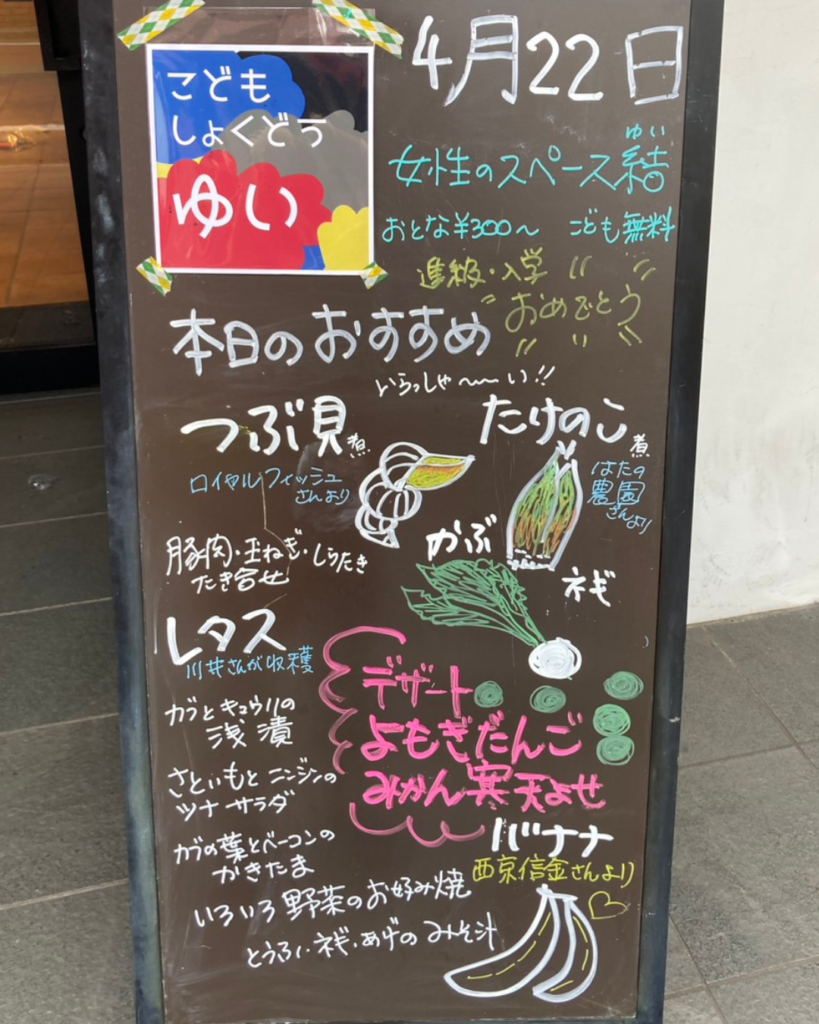 こども
しょくどう
ゆい
4月22日
ゆい
女性のスペース結
おとな¥300〜 こども無料
進級・入学
おめでとう
本日のおすすめ
いらっしゃ〜〜い!!
つぶ貝煮
ロイヤルフィッシュ
さんより
たけのこ煮
はたの
農園
さんより
豚肉・玉ねぎ・しらたき
たき合せ
かぶ
ネギ
レタス
川井さんが収穫
カブとキュウリの
浅漬
さといもとニンジンの
ツナサラダ
カブの葉とベーコンの
かきたま
いろいろ野菜のお好み焼
とうふ・ネギ・あげのみそ汁
デザート
よもぎだんご
みかん寒天よせ
バナナ
西京信金さんより